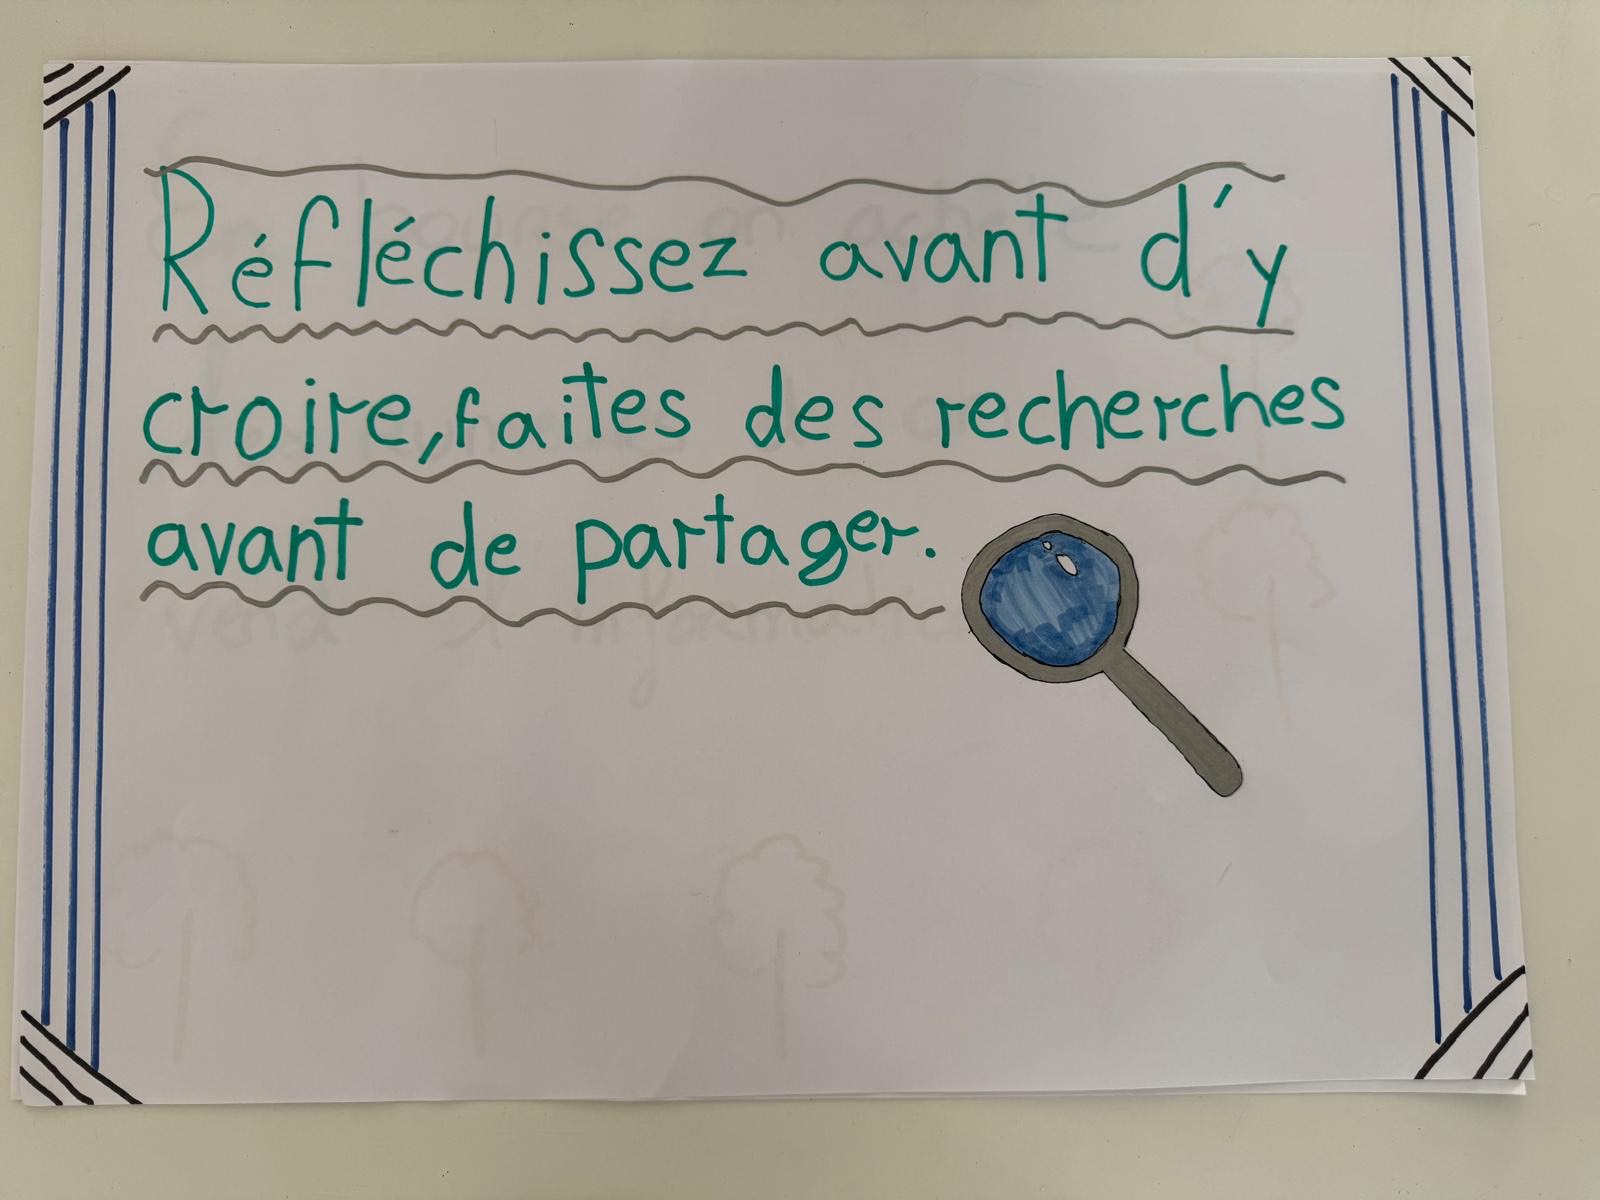 Réfléchissez avant d'y
croire, faites des recherches
avant de partager.